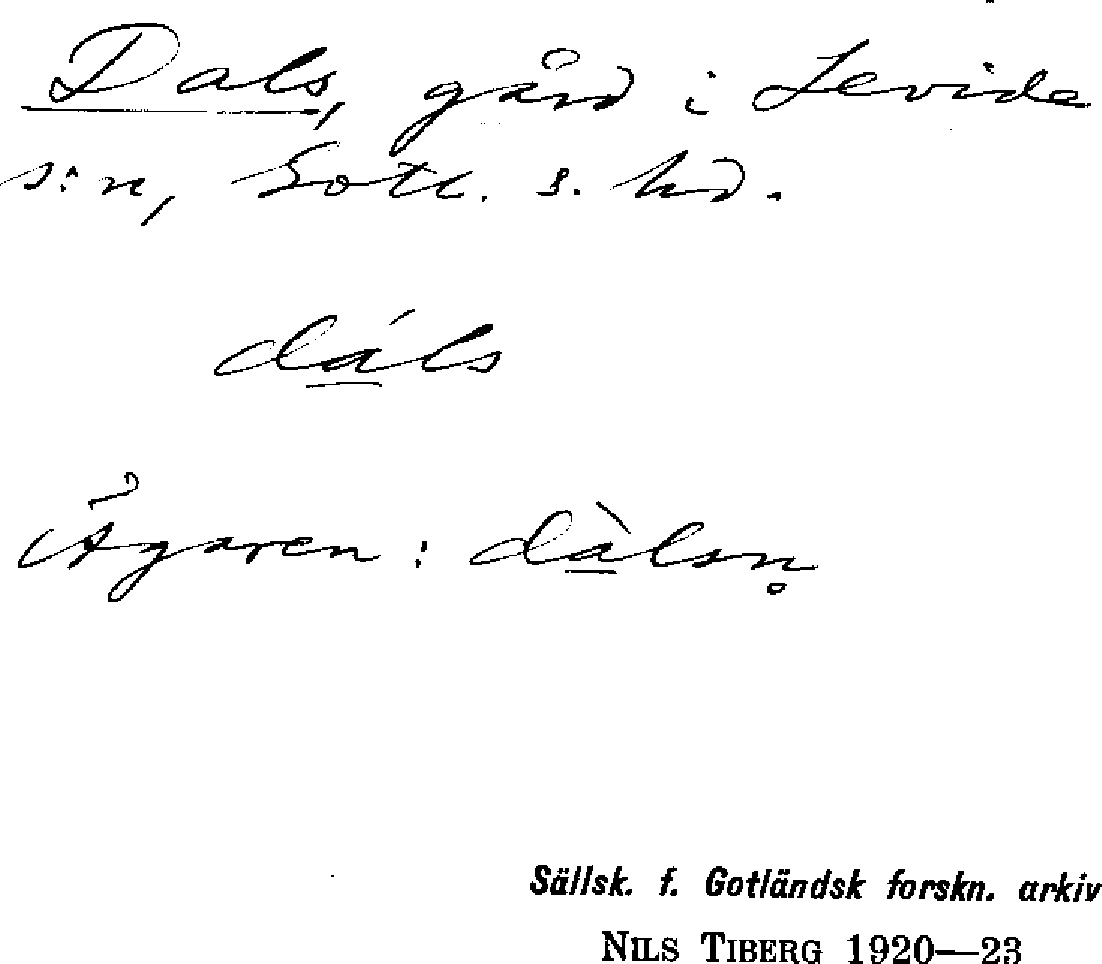 Dals, gård i Levide
s:n, Gotl. s. hd.
dá̲ls
Ägaren: dà̲lsn̥
Sällsk. f. Gotländsk forskn. arkiv
NILS TIBERG 1920—23